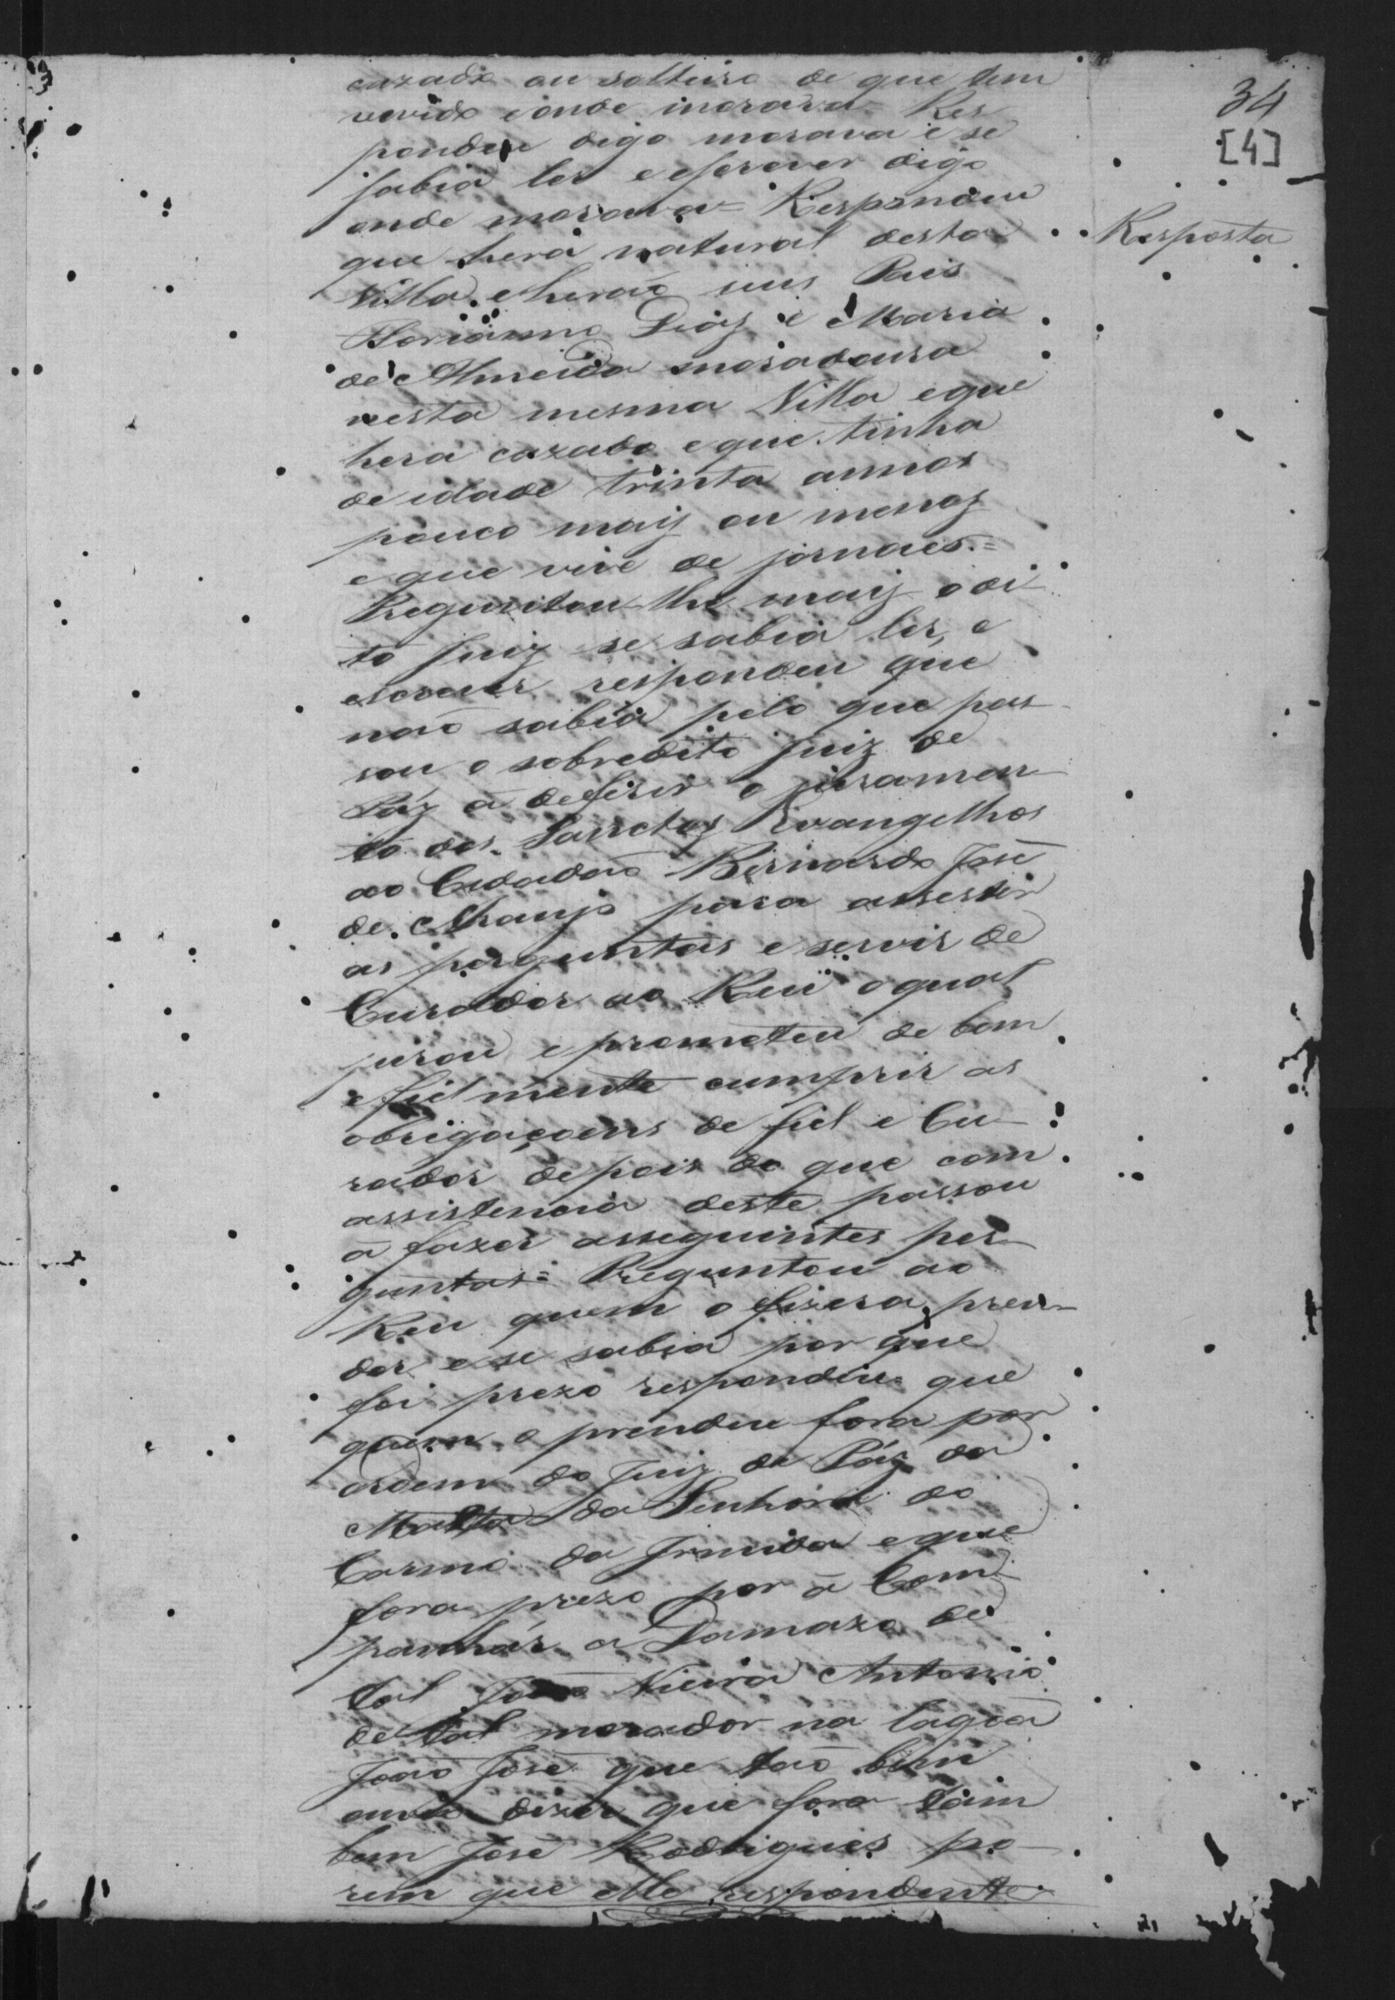 34
[4]
cazado ou solteiro de que tem
vivido e onde morara = Res
pondeu digo morava e se
sabia ler e escrever digo
onde morava = Respondeu
Resposta
que hera natural desta
Villa, e herão seus Pais
Floriänno Diaz e Maria
de Almeida moradoura
nesta mesma Villa e que
hera cazado e que tinha
de idade trinta annos
pouco maiz ou menoz
e que vive de jornaes. =
Preguntou-lhe maiz o di-
to Juiz se sabia ler, e
escrever respondeu que
naõ sabia pelo que pas-
sou o sobredito Juiz de
Páz a deferir o juramen-
to dos Sanctos Evangelhos
ao Cidadaõ Bernardo José
de Araujo para assestir
as preguntas e servir de
Curador ao Reu o qual
jurou e prometeu de bem
e fielmente cumprir as
obrigaçoens de fiel e Cu-
rador depois do que com
assistencia deste passou
a fazer asseguintes per-
guntas = Preguntou ao
Reu quem o fizera pren-
der e se sabia por que
foi prezo respondeu que
quem o prendeu fora por
ordem do Juiz de Páz da
Matta da Senhora do
Carmo da Irmida e que
fora prezo por a Com-
panhár a Damazo de
tal João Vieira Antonio
de tal morador na lagoa
João José que taõ bem
ouvio dizer que fora tam
bem José Rodrigues po-
rem que elle respondente